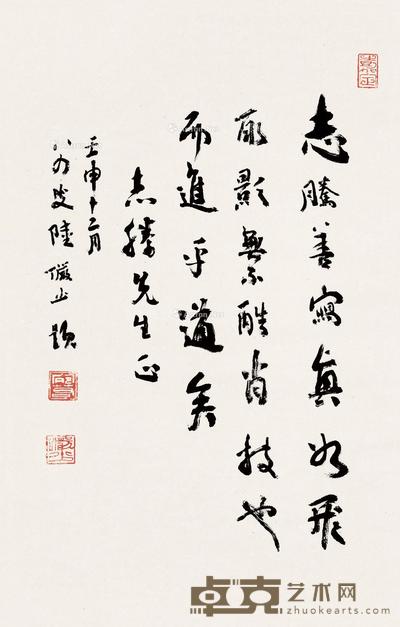 志勝善寫真如飛
取影無不酷肖技也
而進乎道矣
志勝先生正
壬申十二月
八四叟陸儼少題
卓克艺术网
zhuokearts.com